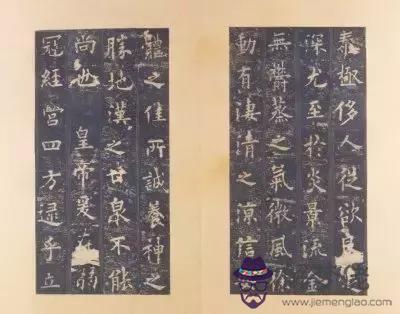 泰極侈人從欲良
深尤至於炎景流金
無鬱蒸之氣微風徐
動有淒清之涼信
體之佳所誠養神之
勝地漢之甘泉不能
尚也 皇帝爰在弱
冠經營四方逮乎立
www.jiemenglao.com